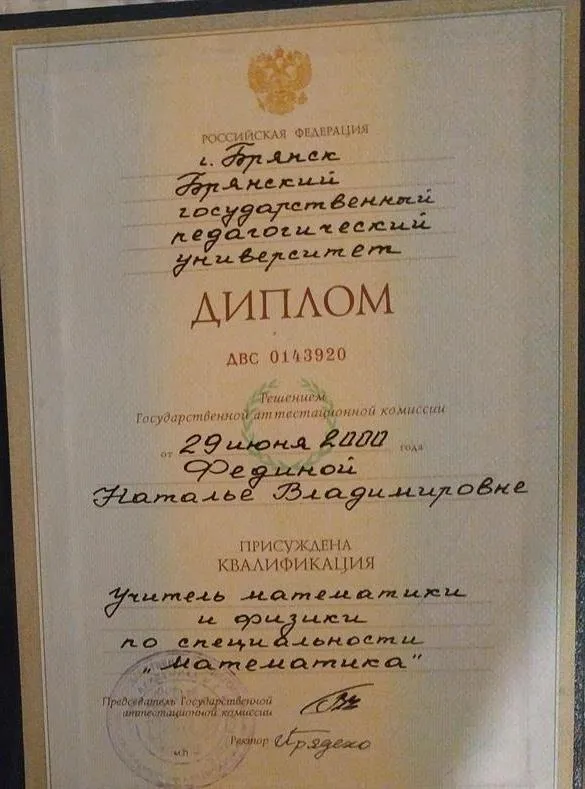 РОССИЙСКАЯ ФЕДЕРАЦИЯ
г. Брянск
Брянский
государственный
педагогический
университет
ДИПЛОМ
ДВС 0143920
Решением
Государственной аттестационной комиссии
от 29 июня 2000 года
Фединой
Наталье Владимировне
ПРИСУЖДЕНА
КВАЛИФИКАЦИЯ
Учитель математики
и физики
по специальности
„математика"
Председатель Государственной
аттестационной комиссии
Ректор
м.п.